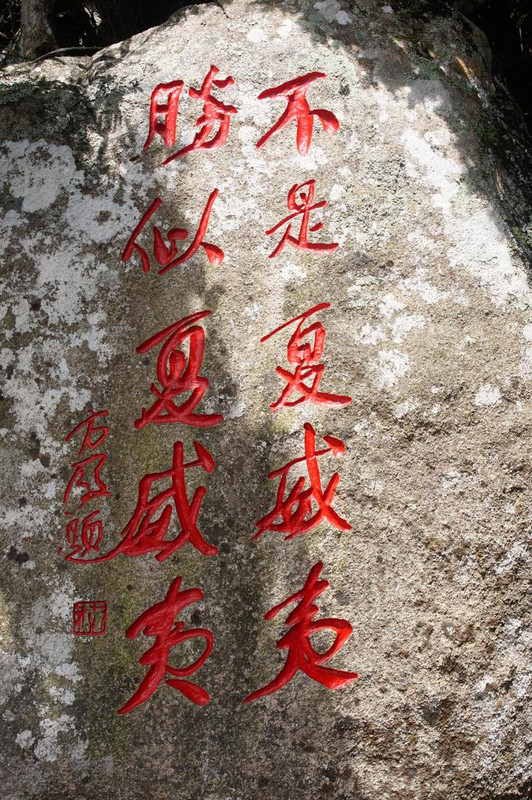 不是夏威夷
勝似夏威夷
方嚴題